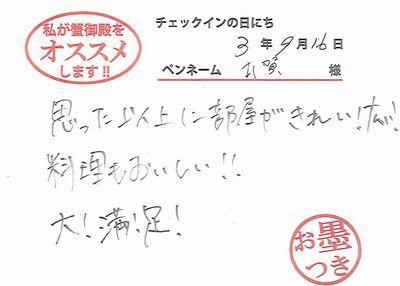 私が蟹御殿を
オススメ
します!!
チェックインの日にち
3年9月16日
ペンネーム 古賀 様
思った以上に部屋がきれい!広い!
料理もおいしい!!
大!満足!
お墨
つき